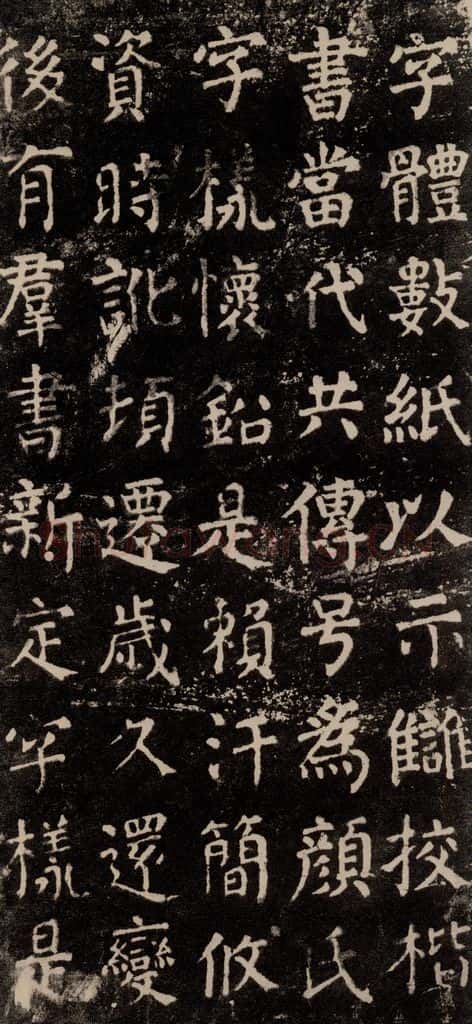 字體數紙以示讎挍楷
書當代共傳号為顔氏
字樣懷鈆是賴汗簡攸
資時訛頃遷歳久還變
後有羣書新定字樣是
shufawang.cn